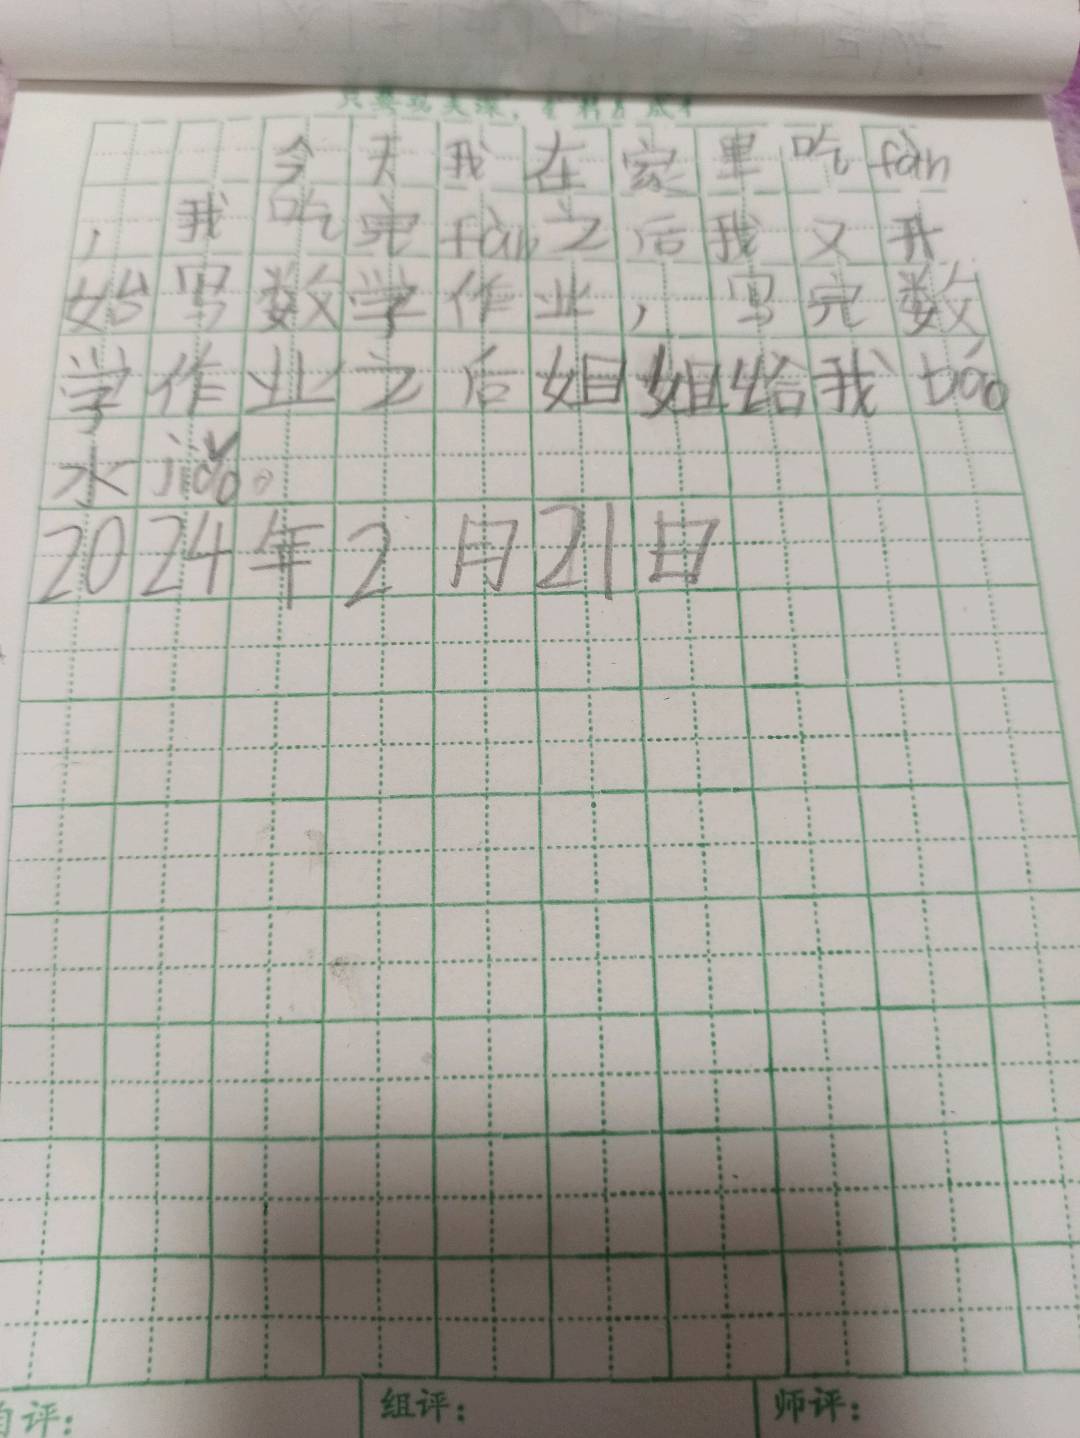 今天我在家里吃fàn
，我吃完fàn之后我又开
始写数学作业，写完数
学作业之后姐姐给我báo
水jiǎo。
2024年2月21日
自评：
组评：
师评：